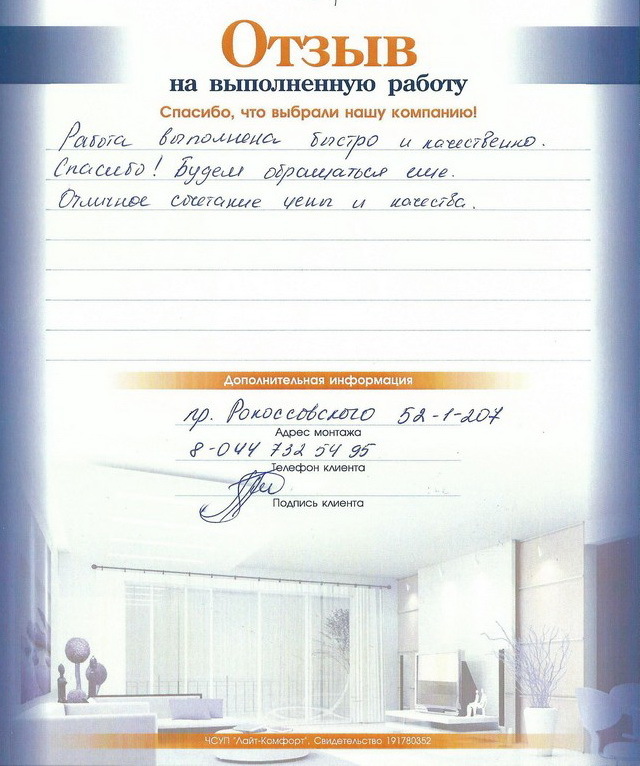 Отзыв
на выполненную работу
Спасибо, что выбрали нашу компанию!
Работа выполнена быстро и качественно.
Спасибо! Будем обращаться еще.
Отличное сочетание цены и качества.
Дополнительная информация
пр. Рокоссовского 52-1-207
Адрес монтажа
8-044 732 54 95
Телефон клиента
Подпись клиента
ЧСУП "Лайт-Комфорт". Свидетельство 191780352